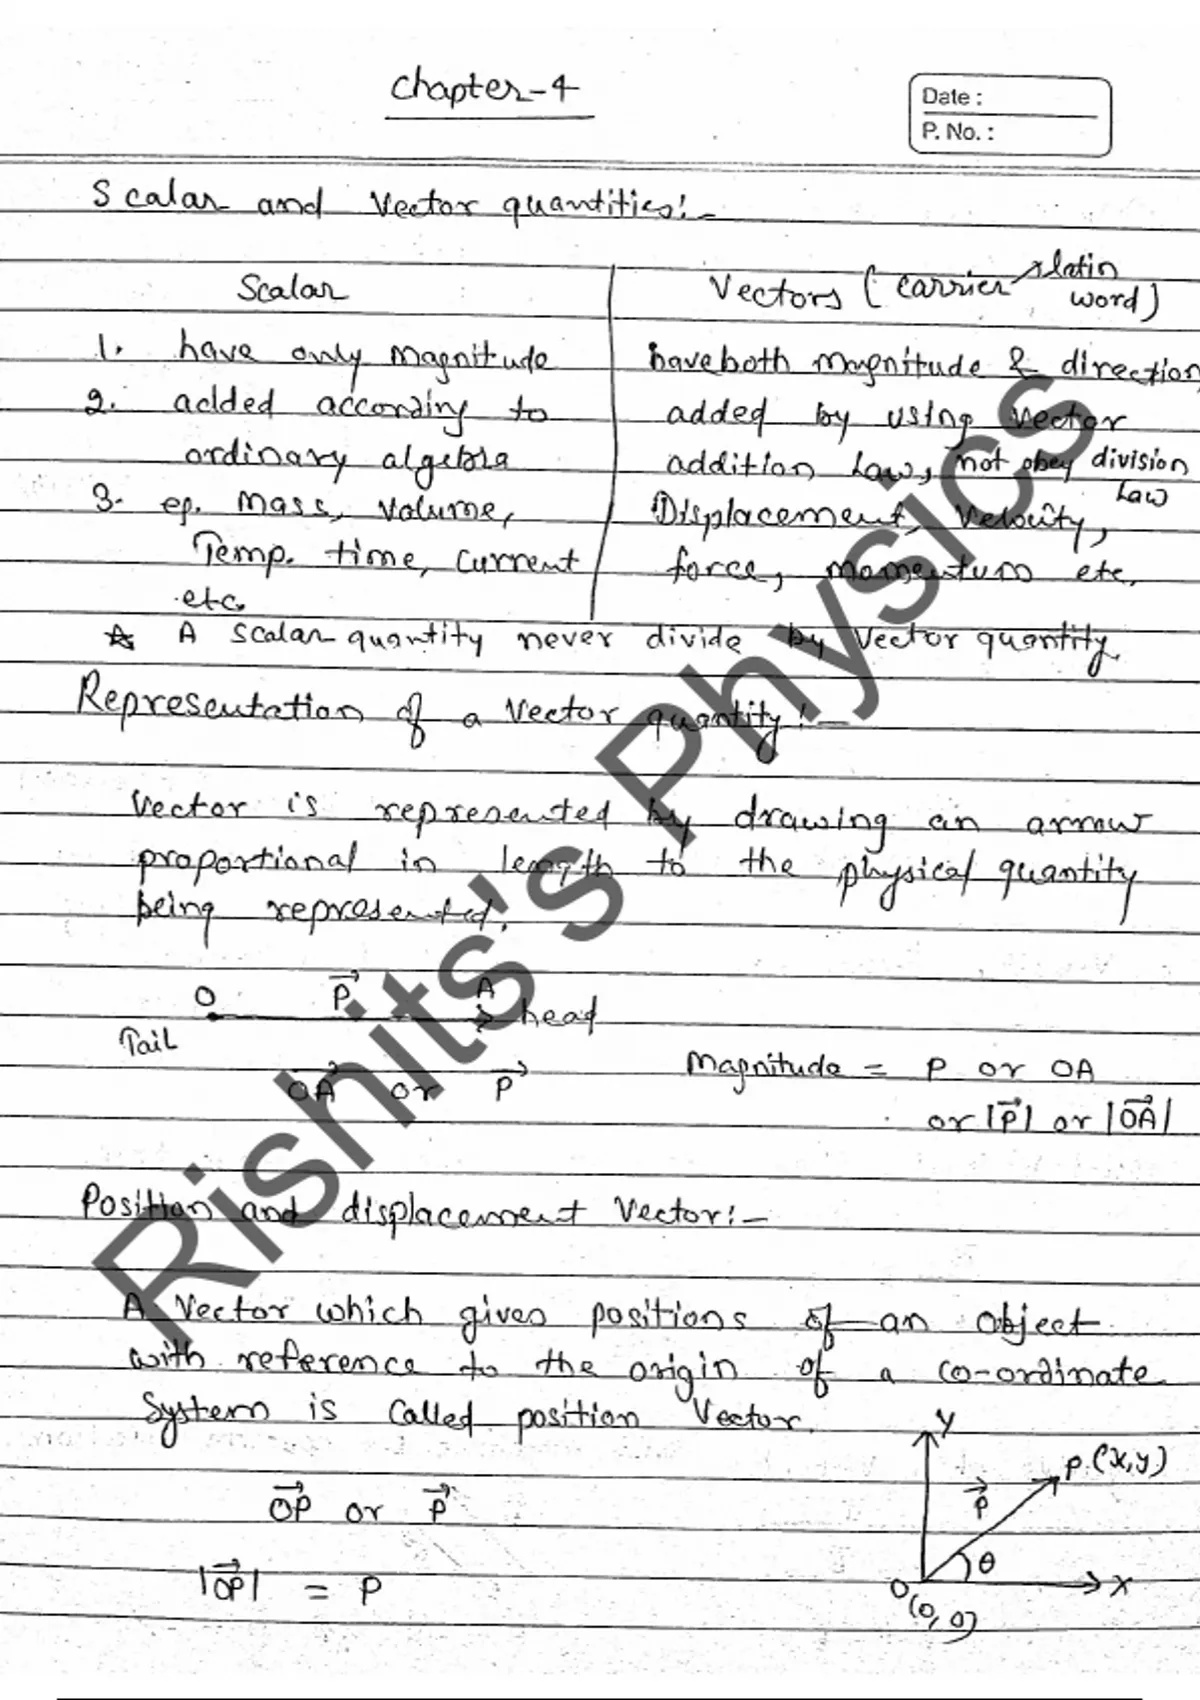 Chapter-4
Date :
P. No. :
Scalar and Vector quantities:-
Scalar
Vectors (carrier → latin word)
1. have only magnitude
have both magnitude & direction
2. added according to
added by using vector
ordinary algebra
addition law, not obey division law
3. eg. mass, volume,
Displacement, velocity,
Temp. time, current
force, momentum etc.
etc.
☆ A scalar quantity never divide by vector quantity.
Representation of a vector quantity:-
Vector is represented by drawing an arrow
proportional in length to the physical quantity
being represented.
O P⃗ A head
Tail
OA⃗ or P⃗
Magnitude = P or OA
or |P⃗| or |OA⃗|
Position and displacement Vector:-
A Vector which gives positions of an object
with reference to the origin of a co-ordinate
System is called position Vector.
Y
P(x,y)
P⃗
θ
X
O
(0,0)
OP⃗ or P⃗
|OP⃗| = P
Rishit's Physics